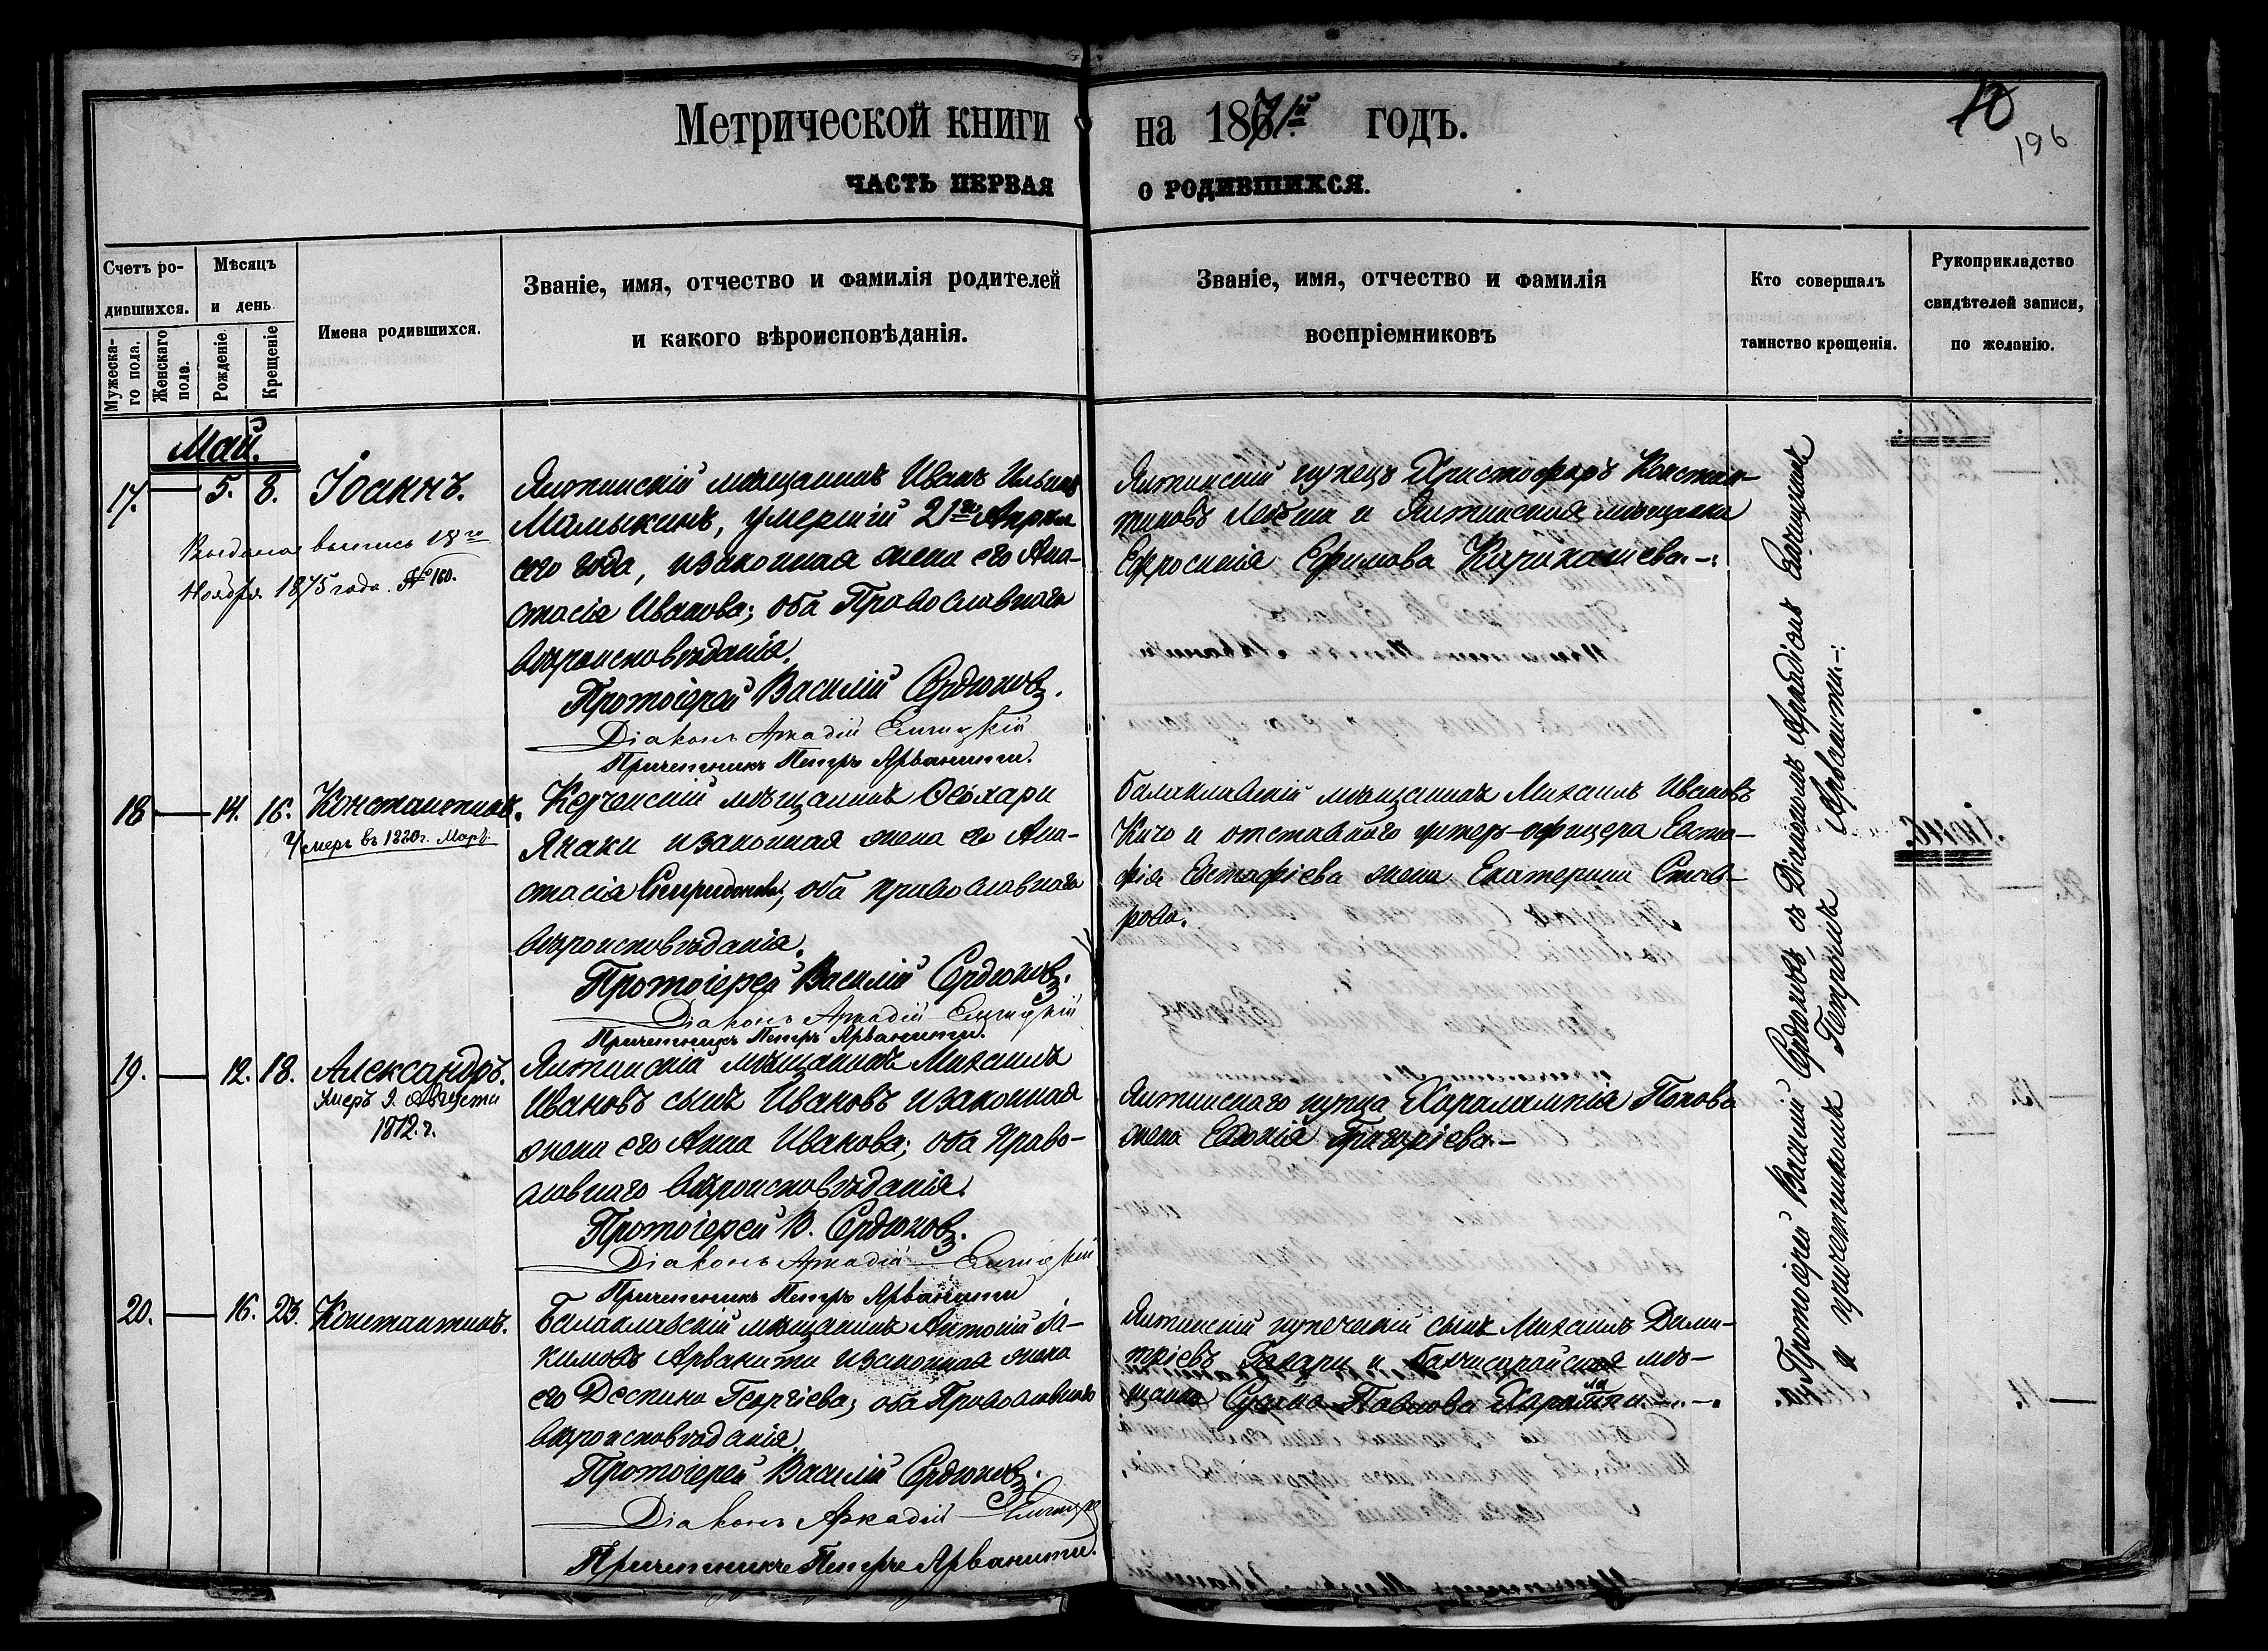 Метрической книги на 1871й годъ.
10
196
ЧАСТЬ ПЕРВАЯ О РОДИВШИХСЯ.
Счетъ ро-
дившихся.
Мужеска-
го пола.
Женскаго
пола.
Мѣсяцъ
и день
Рожденіе.
Крещеніе
Имена родившихся.
Званіе, имя, отчество и фамилія родителей
и какого вѣроисповѣданія.
Званіе, имя, отчество и фамилія
воспріемниковъ
Кто совершалъ
таинство крещенія.
Рукоприкладство
свидѣтелей записи,
по желанію.
Май.
17. — 5. 8. Іоаннъ.
Выдана выпись 18го
Ноября 1875 года. № 160.
Ялтинскій мѣщанинъ Иванъ Ильинъ
Малыкинъ, умершій 21го Апрѣля
сего года, и законная жена его Ана-
стасія Иванова; оба Православнаго
вѣроисповѣданія.
Протоіерей Василій Сердюковъ.
Діаконъ Аркадій
Причетникъ Петръ Арванити.
Ялтинскій купецъ Христофоръ Констан-
тиновъ и Ялтинская мѣщанка
Ефросинія Ефимова
18 — 14. 16. Константинъ.
Умеръ въ 1880г. Мартъ
Керченскій мѣщанинъ Ѳеохари
Яхаки и законная жена его Ана-
стасія Спиридонова; оба православнаго
вѣроисповѣданія.
Протоіерей Василій Сердюковъ.
Діаконъ Аркадій
Причетникъ Петръ Арванити.
Балаклавскій мѣщанинъ Михаилъ Ивановъ
Кичо и отставнаго унтеръ-офицера Евста-
фія Евстафіева жена Екатерина Став-
рова.
19. — 12. 18. Александръ.
Умеръ 9. Августа
1872. г.
Ялтинскій мѣщанинъ Михаилъ
Ивановъ сынъ Ивановъ и законная
жена его Анна Иванова; оба Право-
славнаго вѣроисповѣданія.
Протоіерей В. Сердюковъ.
Діаконъ Аркадій
Причетникъ Петръ Арванити
Ялтинскаго купца Харалампія Попова
жена Евдокія Григоріева.—
20. — 16. 23. Константинъ.
Балаклавскій мѣщанинъ Антоній Я-
кимовъ Арванити и законная жена
его Деспина Георгіева; оба Православнаго
вѣроисповѣданія.
Протоіерей Василій Сердюковъ.
Діаконъ Аркадій
Причетникъ Петръ Арванити.
Ялтинскій купеческій сынъ Михаилъ Дими-
тріевъ и Бахчисарайская мѣ-
щанка Павлова
Протоіерей Василій Сердюковъ, съ Діакономъ Аркадіемъ
и причетникомъ Петромъ Арванити.—